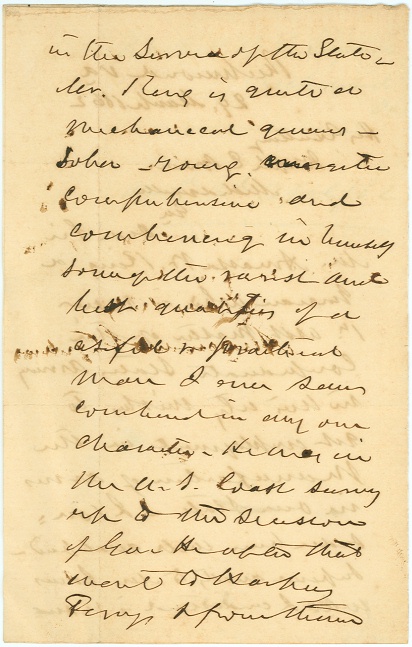 in the Service of the State -
Mr. King is quite a
mechanical genius -
sober - young energetic
comprehensive and
combining in himself
some of the rarest and
best qualities of a
useful & practical
man I ever saw
combined in any one
character - He was in
the U. S. Coast survey
up to the secession
of Geo. He after that
went to Harpers
Ferry & from thence